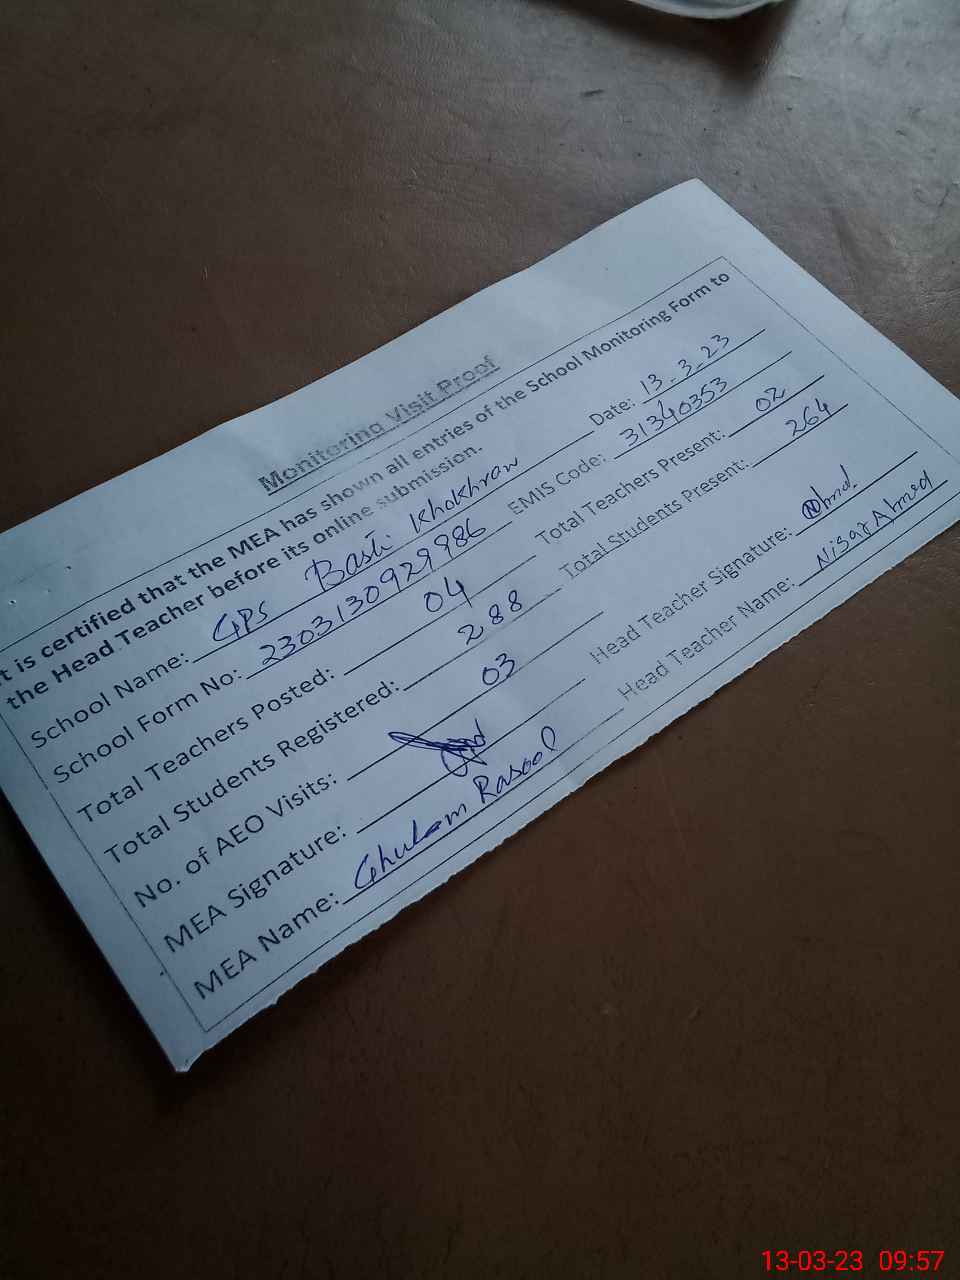 Monitoring Visit Proof
t is certified that the MEA has shown all entries of the School Monitoring Form to
the Head Teacher before its online submission.
School Name: GPS Basti Khokhran Date: 13-3-23
School Form No: 2303130929986 EMIS Code: 31340353
Total Teachers Posted: 04 Total Teachers Present: 02
Total Students Registered: 288 Total Students Present: 264
No. of AEO Visits: 03
MEA Signature: Head Teacher Signature:
MEA Name: Ghulam Rasool Head Teacher Name: Nisar Ahmed
13-03-23 09:57